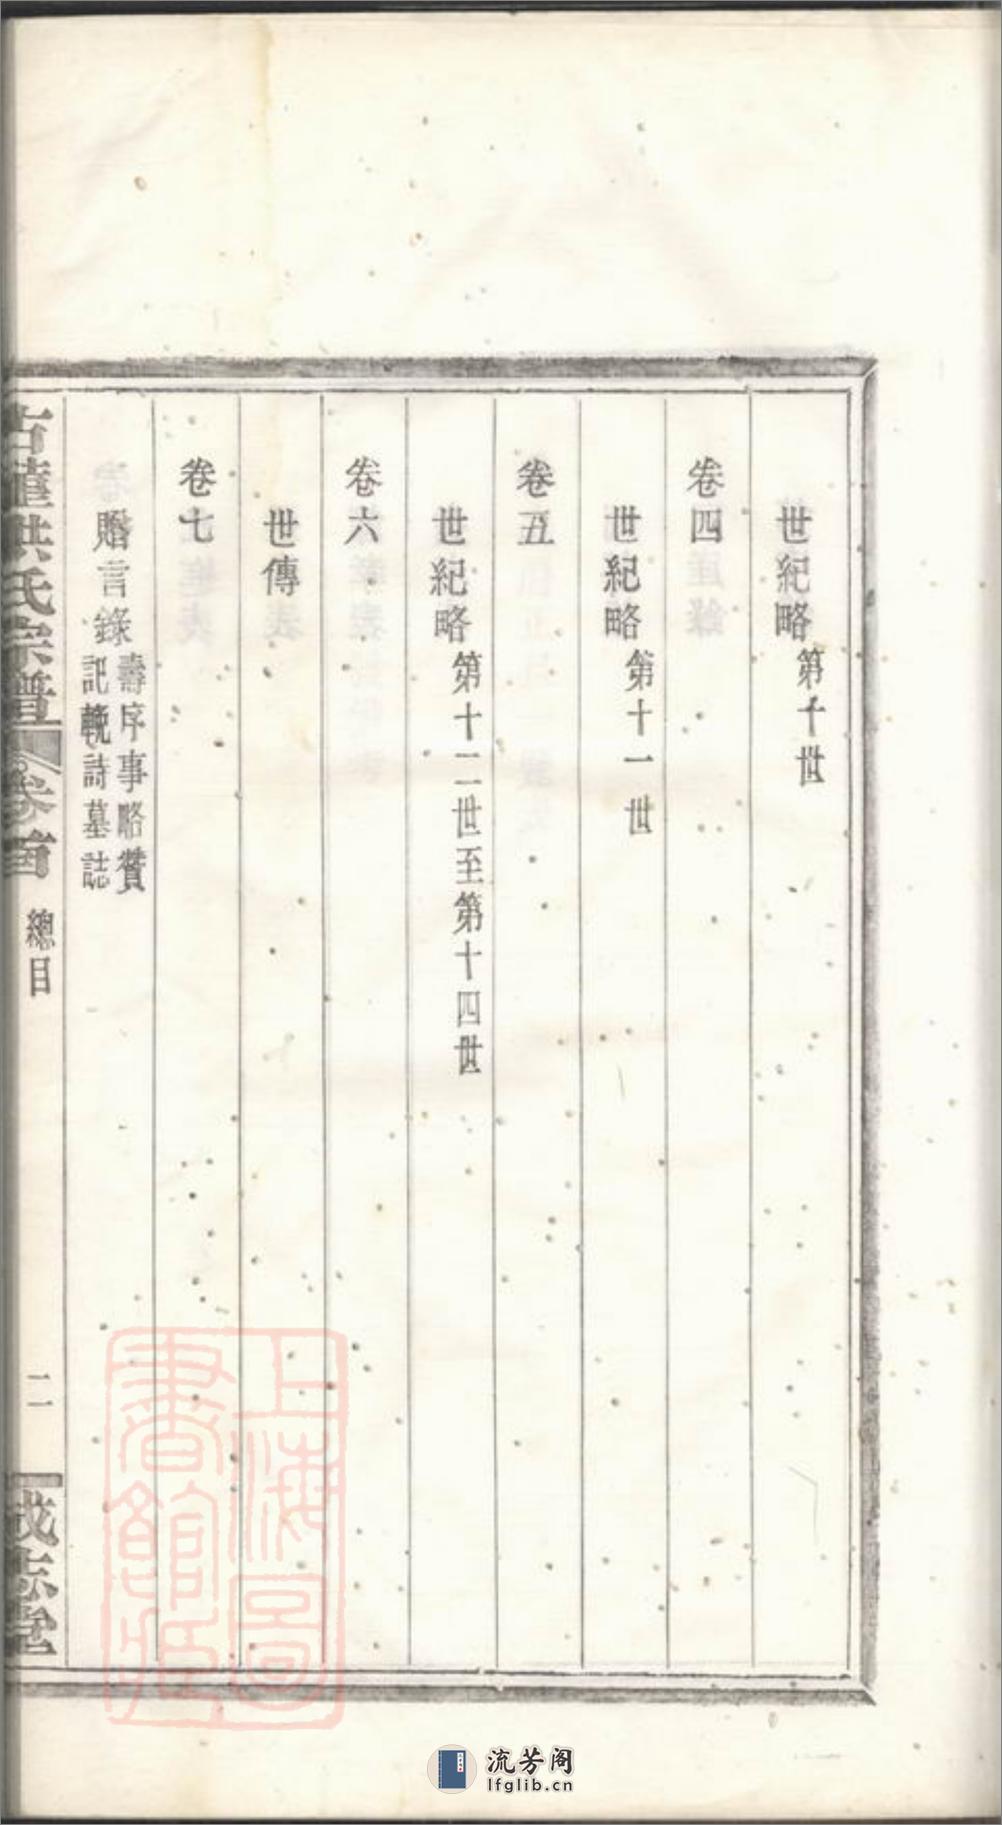 世紀略第十世
卷四
世紀略第十一世
卷五
世紀略第十二世至第十四世
卷六
世傳
卷七
贈言錄壽序事略贊
記輓詩墓誌
古蓮洪氏宗譜
卷首
總目
二
成志堂
上海圖書館藏
流芳阁
lfglib.cn